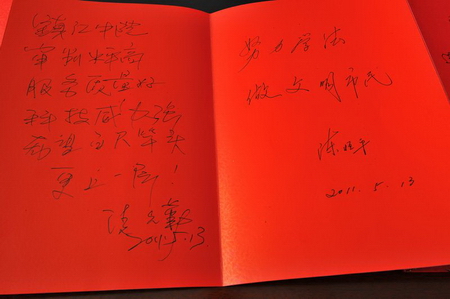 镇江中院
审判水平高
服务质量好
科技威力强
希望百尺竿头
更上一层！
2011.5.13
努力学法
做文明市民
陈
2011.5.13